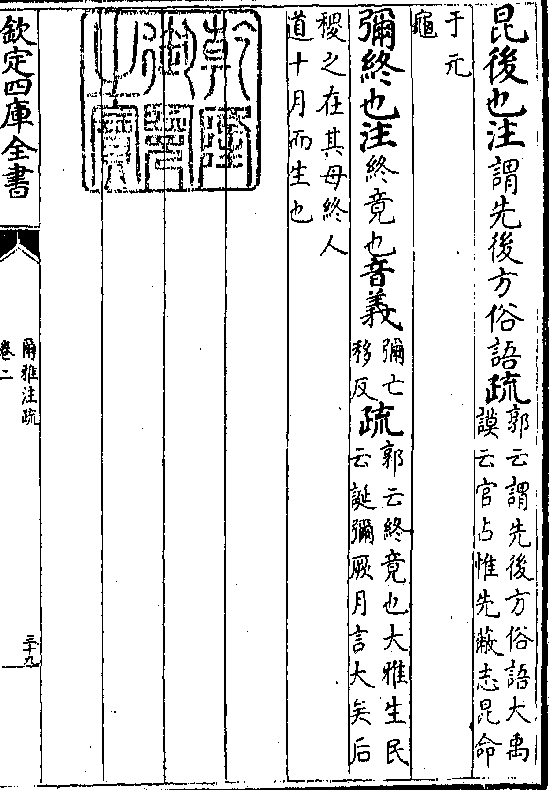 昆後也注謂先後方俗語疏郭云謂先後方俗語大禹
謨云官占惟先蔽志昆命
于元
龜
彌終也注終竟也音義彌亡
移反疏郭云終竟也大雅生民
云誕彌厥月言大矣后
稷之在其母終人
道十月而生也
乾隆御覽之寶
欽定四庫全書
爾雅注疏
卷二
三十九